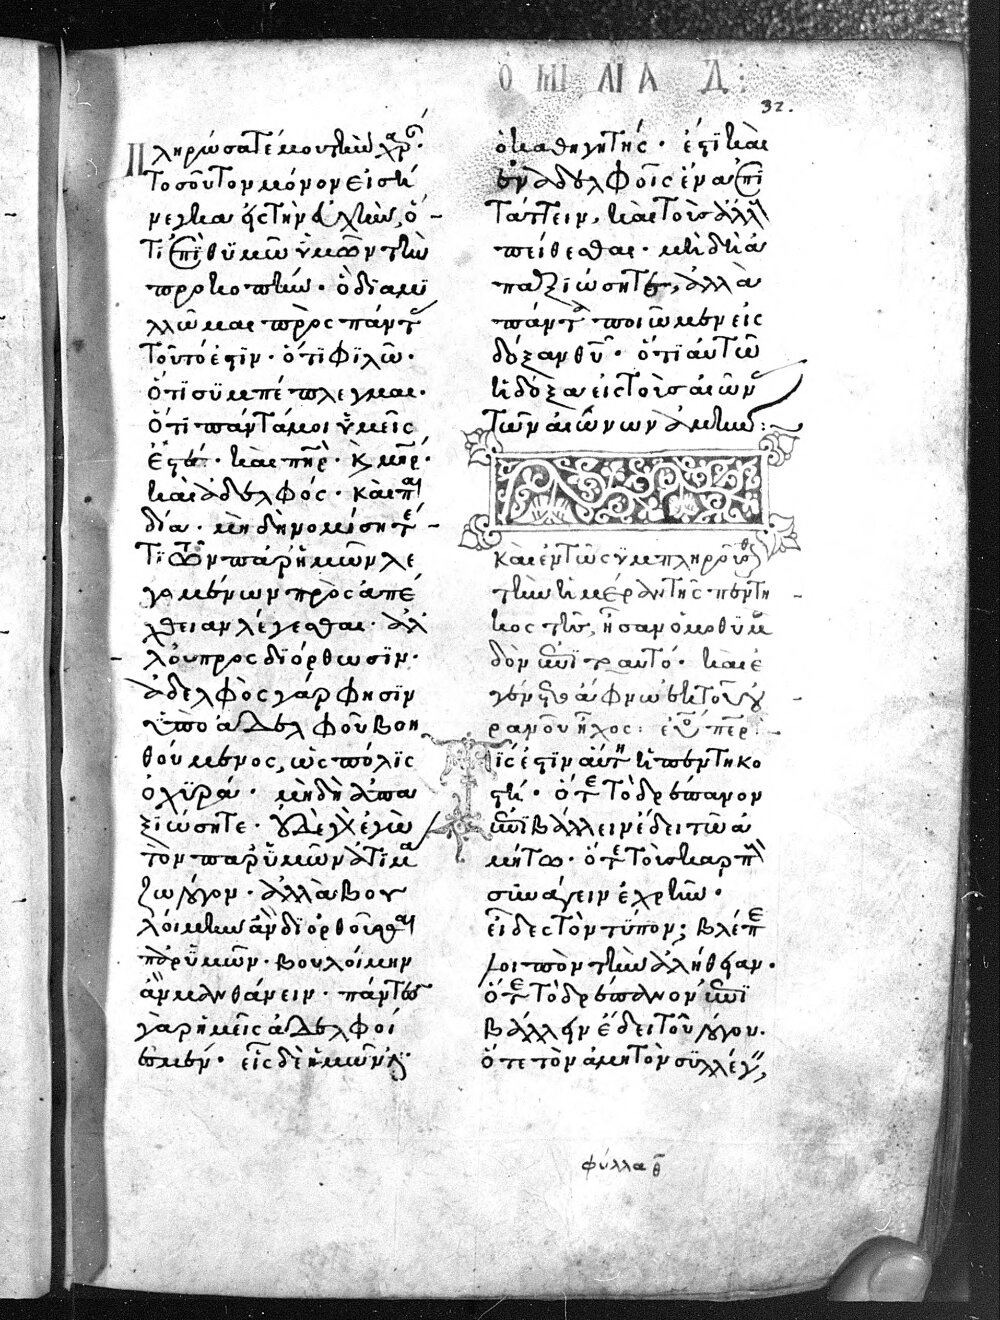 ΟΜΙΛΙΑ Δ:
32.
Πληρώσατέ μου τὴν χαρ·
τοσοῦτον μόνον εἰσή
νεγκα εἰς τὴν ὁ
τι ἐπιθυμῶ ὑμῶν τὴν
προκοπήν· ὁ δὲ ἁμι
λλῶμαι πρὸς πάντ
τοῦτό ἐστιν· ὅτι φιλῶ·
ὅτι συμπέπλεγμαι·
ὅτι πάντα μοι ὑμεῖς
ἐστέ· καὶ πηρ· κ μηρ·
καὶ ἀδελφός· καὶ παι
δία· μὴ δὴ νομίσητέ
τι τῶν παρ ἡμῶν λε
γομένων πρὸς ἀπέ
χθειαν λέγεσθαι· ἀλ
λὰ πρὸς διόρθωσιν·
ἀδελφὸς γάρ φησιν
ὑπὸ ἀδελφοῦ βοη
θούμενος, ὡς πόλις
ὀχυρά· μὴ δὴ ἀπα
ξιώσητε· οὐδὲ γὰρ ἐγὼ
τὸν παρ ὑμῶν ἀτιμά
ζω λόγον· ἀλλὰ βου
λοίμην ἂν διορθοῦσθαι
παρ ὑμῶν· βουλοίμην
ἂν μανθάνειν· πάντες
γὰρ ἡμεῖς ἀδελφοί
ἐσμεν· εἷς δὲ ἡμῶν
ὁ καθηγητής· ἐστὶ καὶ
ἐν ἀδελφοῖς ἕνα ἐπι
τάττειν, καὶ τοὺς ἄλλ
πείθεσθαι· μὴ δὴ ἀ
παξιώσητε, ἀλλὰ
πάντα ποιῶμεν εἰς
δόξαν θυ· ὅτι αὐτῶ
ἡ δόξα εἰς τοὺς αἰῶν
τῶν αἰώνων ἀμήν:
Καὶ ἐν τῷ συμπληροῦσθ
τὴν ἡμέραν τῆς πεντη
κοστῆς, ἦσαν ὁμοθυμα
δὸν ἐπὶ τὸ αὐτό· καὶ ἐ
γένετο ἄφνω ἐκ τοῦ οὐ
ρανοῦ ἦχος:
Τίς ἐστιν αὕτη ἡ πεντηκο
στή· ὅτε τὸ δρέπανον
ἐπιβάλλειν ἔδει τῶ ἀ
μήτω· ὅτε τοὺς καρπ
συνάγειν ἐχρῆν·
εἶδες τὸν τύπον; βλέπε
μοι πὸν τὴν ἀλήθειαν·
ὅτε τὸ δρέπανον ἐπι
βάλλειν ἔδει τοῦ λόγου·
ὅτε τὸν ἀμητὸν συλλέγ
φύλλα θ